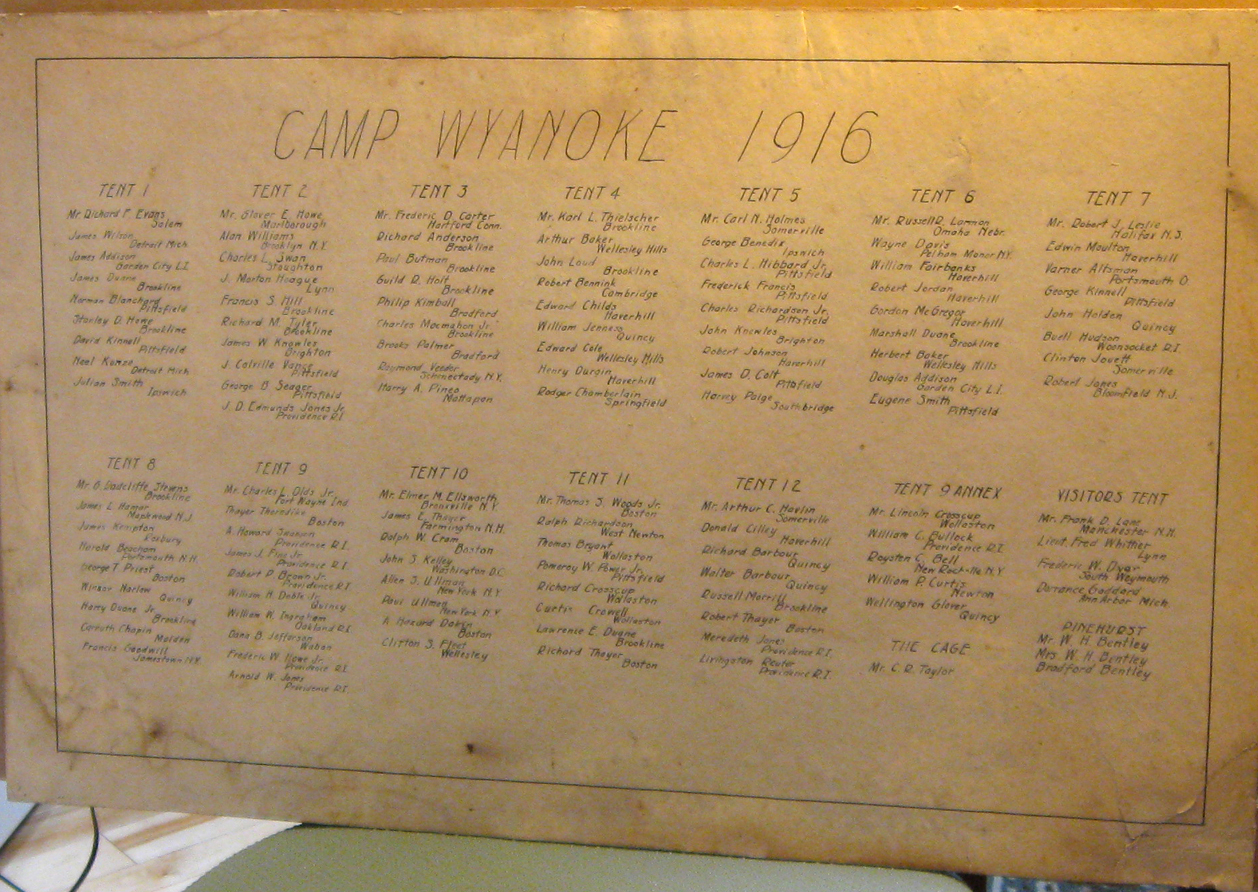 CAMP WYANOKE 1916
TENT 1
Mr. Richard F. Evans
Salem
James Wilson
Detroit Mich
James Addison
Garden City L.I.
James Duane
Brookline
Norman Blanchard
Pittsfield
Stanley D. Howe
Brookline
David Kinnell
Pittsfield
Neel
Detroit Mich
Julian Smith
Ipswich
TENT 2
Mr. Glover E. Howe
Marlborough
Alan Williams
Brooklyn N.Y.
Charles L. Swan
Stoughton
J. Morton Hoague
Lynn
Francis S. Hill
Brookline
Richard M. Tyler
Brookline
James W. Knowles
Brighton
J. Colville Vance
Pittsfield
George B Seager
Pittsfield
J. D. Edmunds Jones Jr.
Providence R.I.
TENT 3
Mr. Frederic D. Carter
Hartford Conn.
Richard Anderson
Brookline
Paul Butman
Brookline
Guild R. Holt
Brookline
Philip Kimball
Bradford
Charles Macmahon Jr.
Brookline
Brooks Palmer
Bradford
Raymond Veeder
Schenectady N.Y.
Harry A. Pineo
Mattapan
TENT 4
Mr. Karl L. Thielscher
Brookline
Arthur Baker
Wellesley Hills
John Loud
Brookline
Robert Bennink
Cambridge
Edward Childs
Haverhill
William Jenness
Quincy
Edward Cole
Wellesley Hills
Henry Durgin
Haverhill
Rodger Chamberlain
Springfield
TENT 5
Mr. Carl N. Holmes
Somerville
George Benedix
Ipswich
Charles L. Hibbard Jr.
Pittsfield
Frederick Francis
Pittsfield
Charles Richardson Jr.
Pittsfield
John Knowles
Brighton
Robert Johnson
Haverhill
James D. Colt
Pittsfield
Harvey Paige
Southbridge
TENT 6
Mr. Russell R. Larmon
Omaha Nebr.
Wayne Davis
Pelham Manor N.Y.
William Fairbanks
Haverhill
Robert Jordan
Haverhill
Gordon McGregor
Haverhill
Marshall Duane
Brookline
Herbert Baker
Wellesley Hills
Douglas Addison
Garden City L.I.
Eugene Smith
Pittsfield
TENT 7
Mr. Robert J. Leslie
Halifax N.S.
Edwin Moulton
Haverhill
Varner Altsman
Portsmouth O
George Kinnell
Pittsfield
John Holden
Quincy
Buell Hudson
Woonsocket R.I
Clinton Jouett
Somerville
Robert James
Bloomfield N.J.
TENT 8
Mr. G. Dadcliffe Stevens
Brookline
James L Hamar
Maplewood N.J.
James Kempton
Roxbury
Harold Beacham
Portsmouth N.H.
George T Priest
Boston
Winsor Harlem
Quincy
Harry Duane Jr
Brookline
Corbuth Chapin
Malden
Francis Goodwill
Jamestown N.Y.
TENT 9
Mr. Charles L. Olds Jr.
Fort Wayne Ind
Thayer Thorndike
Boston
A. Howard Swanson
Providence R.I.
James J. Jr
Providence R.I.
Robert P Brown Jr.
Providence R.I
William H. Doble Jr.
Quincy
William W. Ingraham
Oakland R.I
Dana B Jefferson
Waban
Frederic W. Howe Jr.
Providence R.I.
Arnold W. Jones
Providence R.I
TENT 10
Mr. Elmer M. Ellsworth
Bronxville N.Y.
James E. Thayer
Farmington N.H.
Ralph W. Cram
Boston
John S Kelley
Washington D.C.
Allen S. Ullman
New York N.Y.
Paul Ullman
New York N.Y
A Howard
Boston
Clifton S. Fleet
Wellesley
TENT 11
Mr. Thomas S. Woods Jr.
Boston
Ralph Richardson
West Newton
Thomas Bryant
Wollaston
Pomeroy W. Power Jr.
Pittsfield
Richard Crosscup
Wollaston
Curtis Crowell
Wollaston
Lawrence E. Duane
Brookline
Richard Thayer
Boston
TENT 12
Mr. Arthur C. Havlin
Somerville
Donald Cilley
Haverhill
Richard Barbour
Quincy
Walter Barbour
Quincy
Russell Morrill
Brookline
Robert Thayer
Boston
Meredeth Jones
Providence R.I.
Livingston
Providence R.I
TENT 9 ANNEX
Mr. Lincoln Crosscup
Wollaston
William C. Bullock
Providence R.I
Roysten C. Bell
New Rochelle N.Y
William P. Curtis
Newton
Wellington Glover
Quincy
THE CAGE
Mr. C R. Taylor
VISITORS TENT
Mr. Frank D. Lane
Manchester N.H.
Lieut. Fred Whither
Lynn
Frederic W. Dyer
South Weymouth
Durrance Goddard
Ann Arbor Mich
PINEHURST
Mr. W. H. Bentley
Mrs. W. H. Bentley
Bradford Bentley